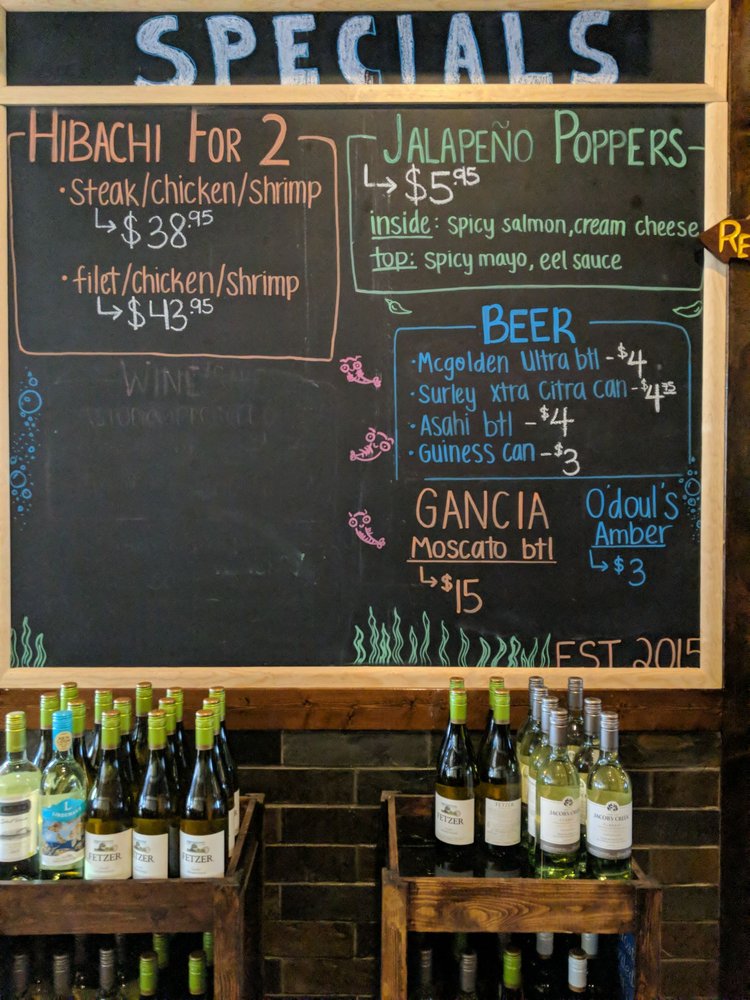 SPECIALS
HIBACHI FOR 2
• Steak/chicken/shrimp
↳ $38.95
• filet/chicken/shrimp
↳ $43.95
WINE
JALAPEÑO POPPERS
↳ $5.95
inside: spicy salmon, cream cheese
top: spicy mayo, eel sauce
RE
BEER
• Mcgolden Ultra btl - $4
• Surley xtra Citra can - $4.75
• Asahi btl - $4
• Guiness can - $3
GANCIA
Moscato btl
↳ $15
O'doul's
Amber
↳ $3
EST 2015
FETZER
FETZER
FETZER
FETZER
FETZER
JACOB'S CREEK
JACOB'S CREEK